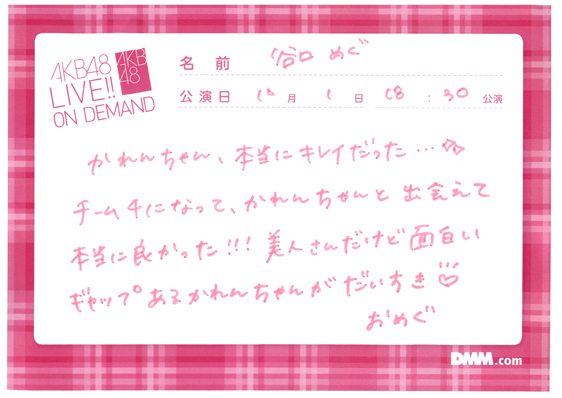 AKB48
LIVE!!
ON DEMAND
AKB
48
名前 谷口 めぐ
公演日 10月 1日 18:30公演
かれんちゃん、本当にキレイだった…
チーム4になって、かれんちゃんと出会えて
本当に良かった!!! 美人さんだけど面白い
ギャップあるかれんちゃんがだいすき♡
おめぐ
DMM.com